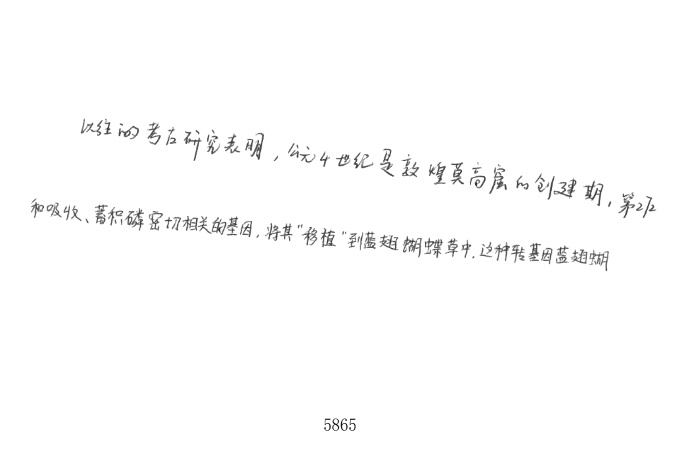 以往的考古研究表明，公元4世纪是敦煌莫高窟的创建期，第272
和吸收、蓄积磷密切相关的基因，将其“移植”到蓝翅蝴蝶草中，这种转基因蓝翅蝴
5865